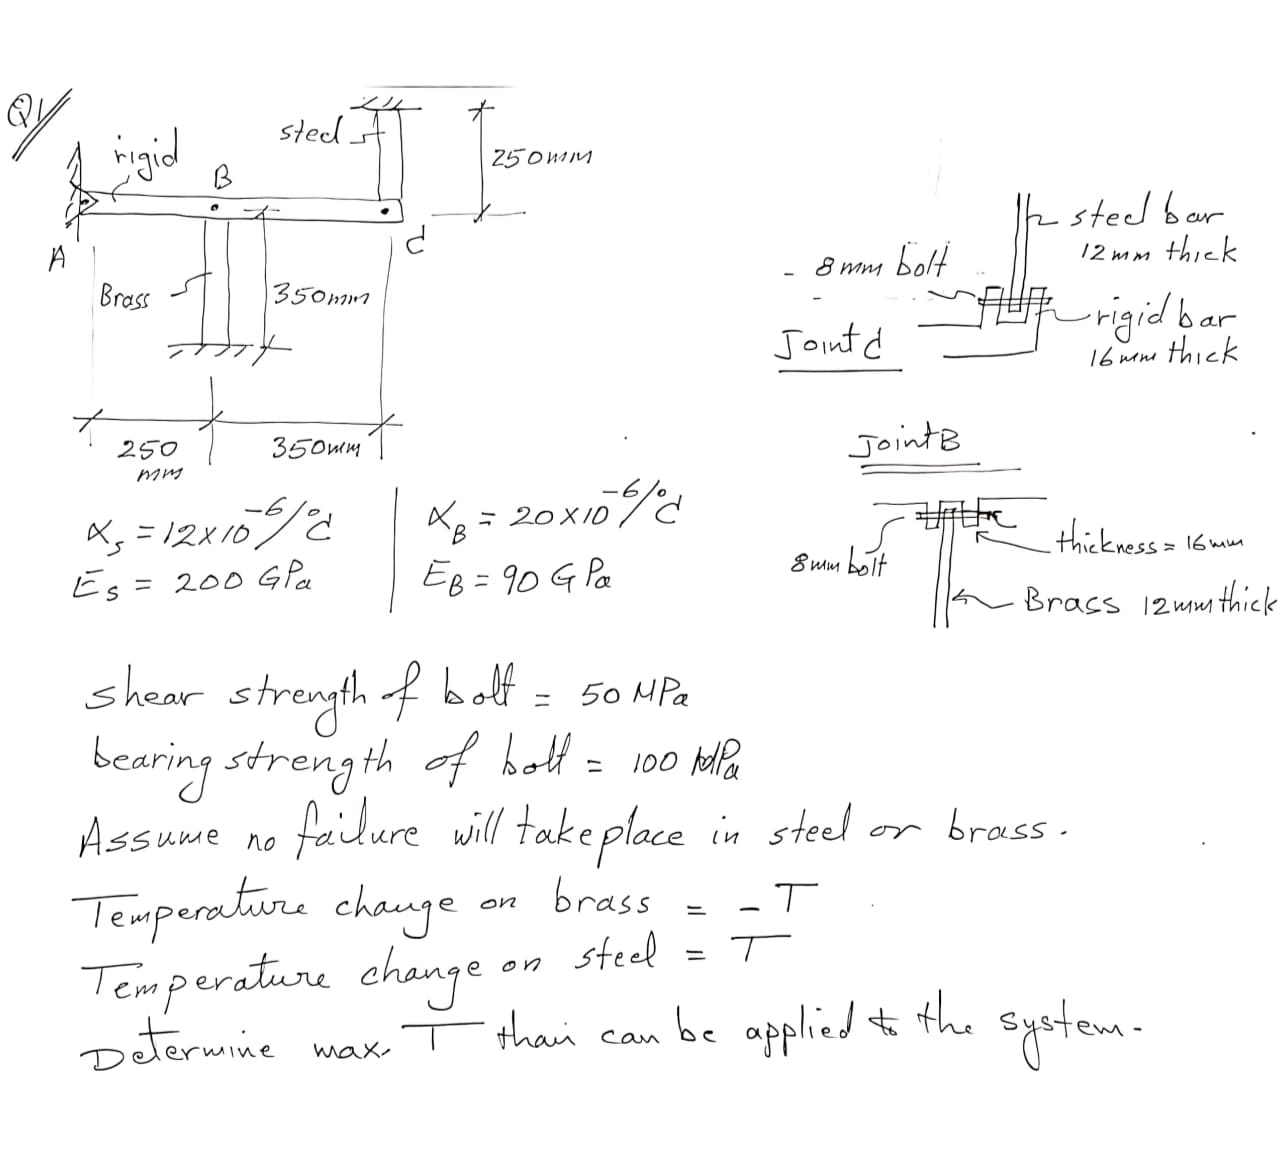 Q1
rigid
steel
250mm
B
A
d
Brass
350mm
250
mm
350mm
- 8mm bolt
-
Joint d
steel bar
12mm thick
rigid bar
16mm thick
Joint B
8mm bolt
thickness = 16mm
Brass 12mm thick
αs = 12x10^-6/°c
Es = 200 GPa
αB = 20x10^-6/°c
EB = 90 GPa
shear strength of bolt = 50 MPa
bearing strength of bolt = 100 MPa
Assume no failure will take place in steel or brass.
Temperature change on brass = - T
Temperature change on steel = T
Determine max. T than can be applied to the system.